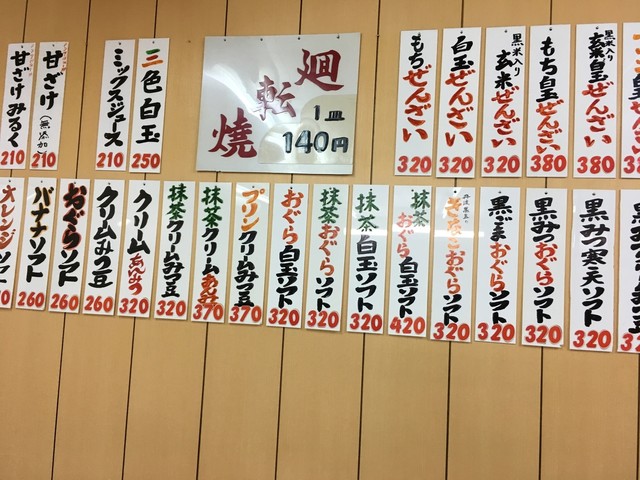 甘ざけみるく
210
甘ざけ
(無添加)
210
ミックスジュース
210
三色白玉
250
廻転焼
1皿
140円
もちぜんざい
320
白玉ぜんざい
320
黒米入り
玄米ぜんざい
320
もち白玉ぜんざい
380
黒米入り
玄米白玉ぜんざい
380
オレンジソフト
バナナソフト
260
おぐらソフト
260
クリームみつ豆
260
クリームあんみつ
320
抹茶クリームみつ豆
320
抹茶クリームあんみつ
370
プリンクリームみつ豆
370
おぐら白玉ソフト
320
抹茶おぐらソフト
320
抹茶白玉ソフト
320
抹茶おぐら白玉ソフト
420
きなこおぐらソフト
320
黒ごまおぐらソフト
320
黒みつおぐらソフト
320
黒みつ寒天ソフト
320